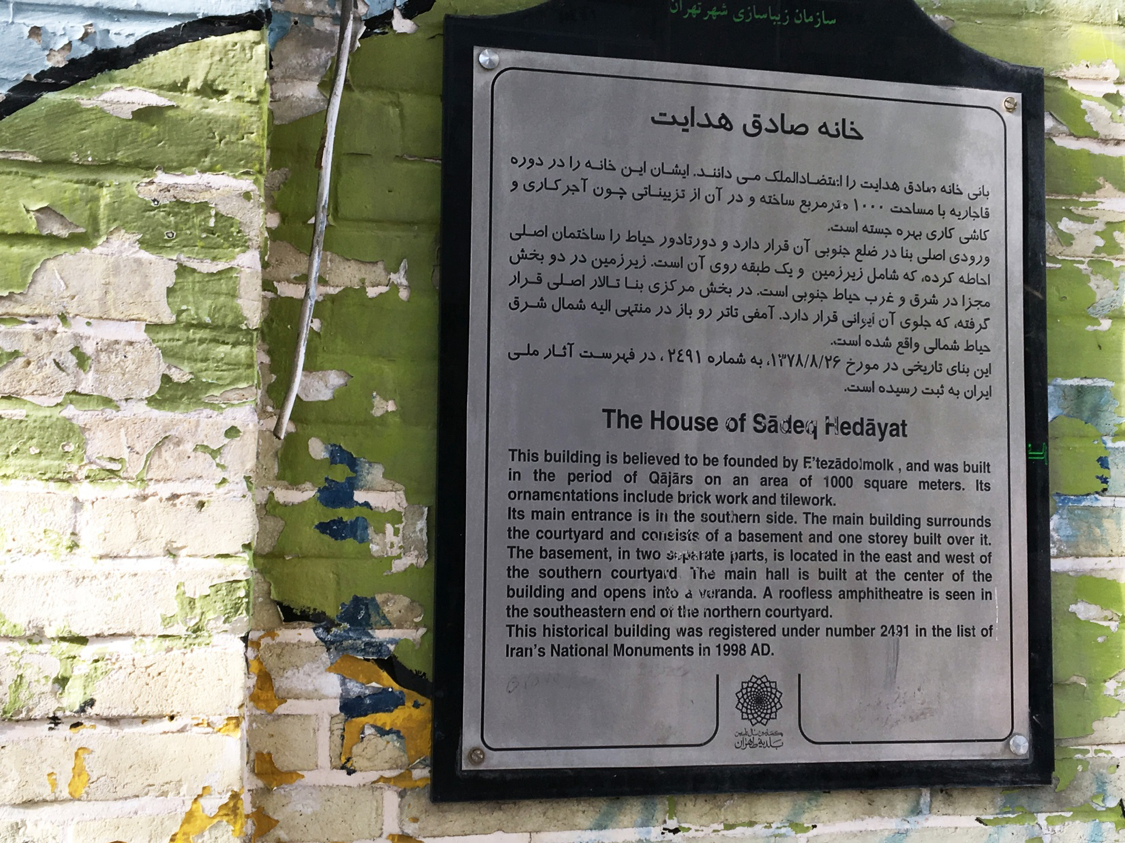 سازمان زیباسازی شهر تهران
خانه صادق هدایت
بانی خانه صادق هدایت را اعتضادالملک می دانند. ایشان این خانه را در دوره
قاجاریه با مساحت ۱۰۰۰ مترمربع ساخته و در آن از تزییناتی چون آجرکاری و
کاشی کاری بهره جسته است.
ورودی اصلی بنا در ضلع جنوبی آن قرار دارد و دورتادور حیاط را ساختمان اصلی
احاطه کرده، که شامل زیرزمین و یک طبقه روی آن است. زیرزمین در دو بخش
مجزا در شرق و غرب حیاط جنوبی است. در بخش مرکزی بنا تالار اصلی قرار
گرفته، که جلوی آن ایوانی قرار دارد. آمفی تاتر رو باز در منتهی الیه شمال شرق
حیاط شمالی واقع شده است.
این بنای تاریخی در مورخ ۱۳۷۸/۸/۲۶، به شماره ۲۴۹۱ ، در فهرست آثار ملی
ایران به ثبت رسیده است.
The House of Sādeq Hedāyat
This building is believed to be founded by E'tezādolmolk , and was built
in the period of Qājārs on an area of 1000 square meters. Its
ornamentations include brick work and tilework.
Its main entrance is in the southern side. The main building surrounds
the courtyard and consists of a basement and one storey built over it.
The basement, in two separate parts, is located in the east and west of
the southern courtyard. The main hall is built at the center of the
building and opens into a veranda. A roofless amphitheatre is seen in
the southeastern end of the northern courtyard.
This historical building was registered under number 2491 in the list of
Iran's National Monuments in 1998 AD.